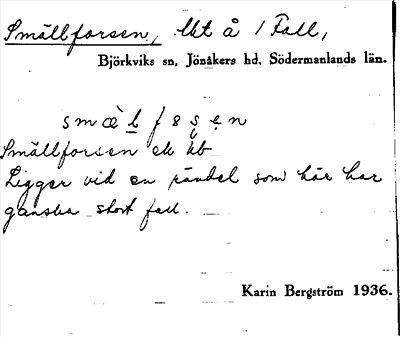 Smällforsen, Utå / Fall,
Björkviks sn, Jönåkers hd, Södermanlands län.
Smällforsen ek kb
Ligger vid en som här har
ganska stort fall.
Karin Bergström 1936.